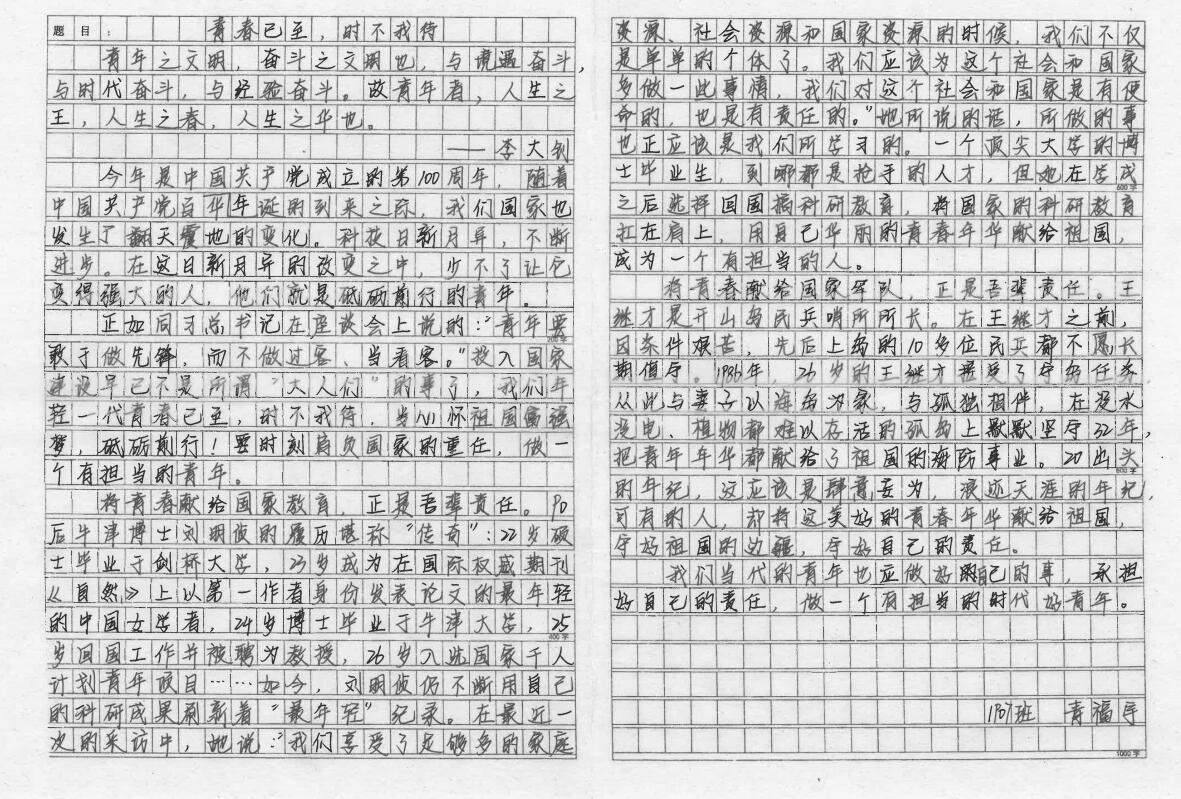 题目：青春已至，时不我待
青年之文明，奋斗之文明也，与境遇奋斗，
与时代奋斗，与经验奋斗。故青年者，人生之
王，人生之春，人生之华也。
——李大钊
今年是中国共产党成立的第100周年，随着
中国共产党百年华诞的到来之际，我们国家也
发生了翻天覆地的变化。科技日新月异，不断
进步。在这日新月异的改变之中，少不了让它
变得强大的人，他们就是砥砺前行的青年。
正如同习总书记在座谈会上说的："青年要
200字
敢于做先锋，而不做过客、当看客。"投入国家
建设早已不是所谓"大人们"的事了，我们年
轻一代青春已至，时不我待，当心怀祖国富强
梦，砥砺前行！要时刻肩负国家的重任，做一
个有担当的青年。
将青春献给国家教育，正是吾辈责任。90
后牛津博士刘明侦的履历堪称"传奇"：22岁硕
士毕业于剑桥大学，23岁成为在国际权威期刊
《自然》上以第一作者身份发表论文的最年轻
的中国女学者，24岁博士毕业于牛津大学，25
400字
岁回国工作并被聘为教授，26岁入选国家千人
计划青年项目……如今，刘明侦仍不断用自己
的科研成果刷新着"最年轻"纪录。在最近一
次的采访中，她说："我们享受了足够多的家庭
资源、社会资源和国家资源的时候，我们不仅
是单单的个体了。我们应该为这个社会和国家
多做一些事情，我们对这个社会和国家是有使
命的，也是有责任的。"她所说的话，所做的事
也正应该是我们所学习的。一个顶尖大学的博
士毕业生，到哪都是抢手的人才，但她在学成
600字
之后选择回国搞科研教育，将国家的科研教育
扛在肩上，用自己华丽的青春年华献给祖国，
成为一个有担当的人。
将青春献给国家军队，正是吾辈责任。王
继才是开山岛民兵哨所所长。在王继才之前，
因条件艰苦，先后上岛的10多位民兵都不愿长
期值守。1986年，26岁的王继才接受了守岛任务，
从此与妻子以海岛为家，与孤独相伴，在没水
没电、植物都难以存活的孤岛上默默坚守32年，
把青年年华都献给了祖国的海防事业。20出头
800字
的年纪，这应该是肆意妄为，浪迹天涯的年纪，
可有的人，却将这美好的青春年华献给祖国，
守好祖国的边疆，守好自己的责任。
我们当代的青年也应做好自己的事，承担
好自己的责任，做一个有担当的时代好青年。
1907班 青福宇
1000字